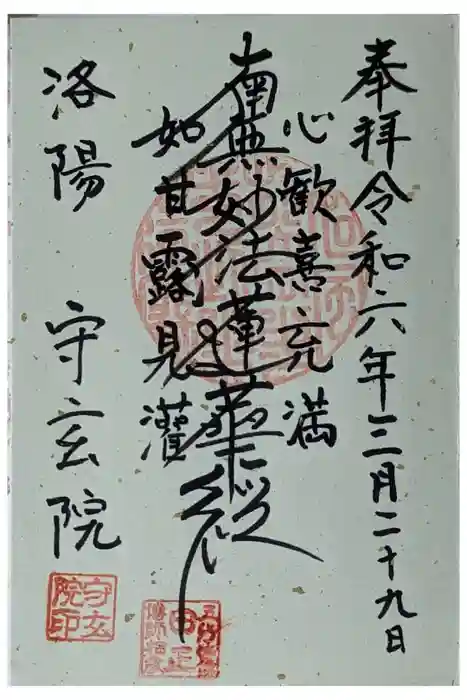 奉拝令和六年三月二十九日
心歓喜充満
南無妙法蓮華経
如甘露見灌
洛陽 守玄院
守玄院印